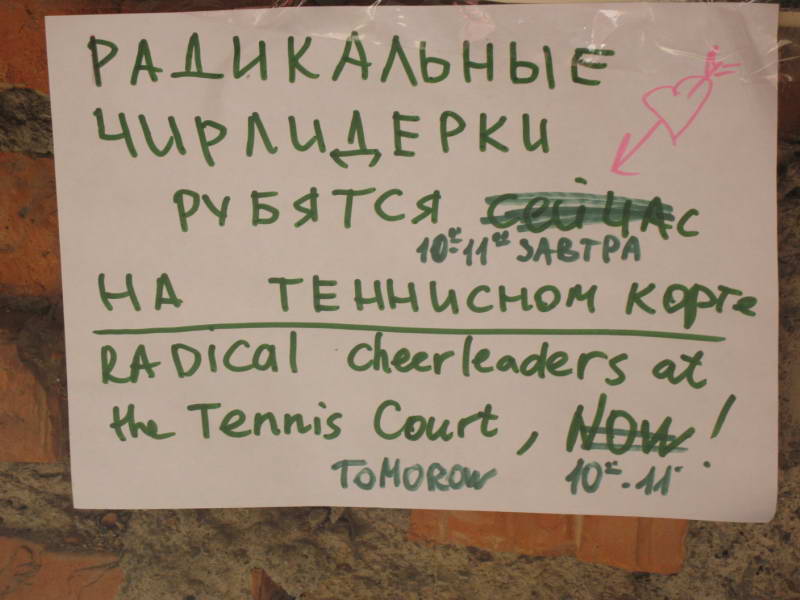 РАДИКАЛЬНЫЕ
ЧИРЛИДЕРКИ
РУБЯТСЯ сейчас
10⁰⁰-11⁰⁰ ЗАВТРА
НА ТЕННИСНОМ КОРТе
RADICal cheerleaders at
the Tennis Court, NOW!
TOMOROW 10⁰⁰-11⁰⁰